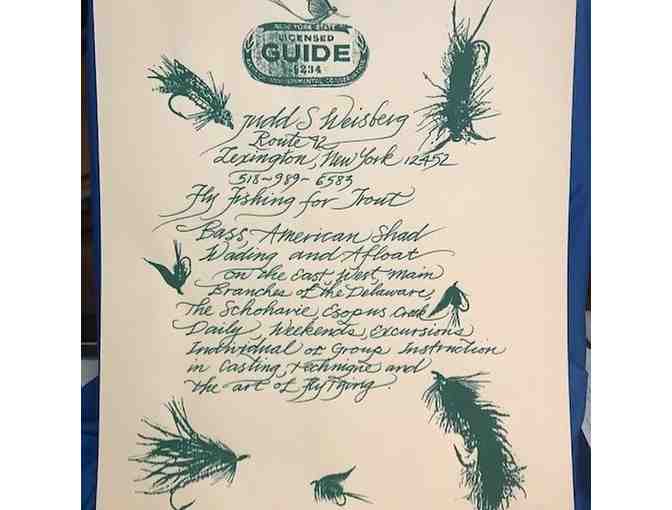 NEW YORK STATE
LICENSED
GUIDE
1234
Judd S Weisberg
Route 42
Lexington, New York 12452
518-989-6583
Fly Fishing for Trout
Bass, American Shad
Wading and Afloat
on the East, West, Main
Branches of the Delaware,
The Schoharie, Esopus Creek
Daily, Weekends, Excursions
Individual or Group Instruction
in Casting, technique and
the art of fly Tying.